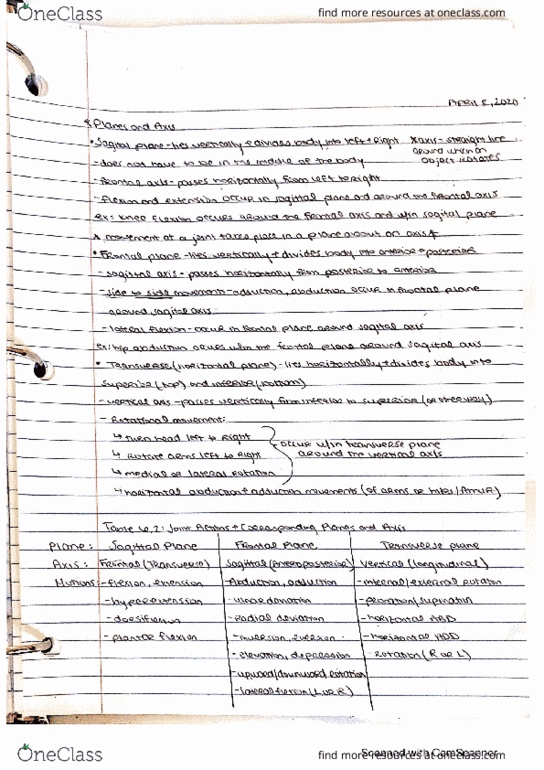 OneClass
find more resources at oneclass.com
April 5, 2020
* Planes and Axis
• Sagital plane - lies vertically + divides body into left + right
* axis - straight line around which an object rotates
- does not have to be in the middle of the body
- frontal axis - passes horizontally from left to right
- flexion and extension occur in sagittal plane and around the frontal axis
ex: knee flexion occurs around the frontal axis and w/in sagital plane
* movement at a joint takes place in a plane about an axis *
• Frontal plane - lies vertically + divides body into anterior + posterior
- sagittal axis - passes horizontally from posterior to anterior
- side to side movements - adduction, abduction occur in frontal plane
around sagital axis
- lateral flexion - occur in frontal plane around sagital axis
ex: hip abduction occurs w/in the frontal plane around sagital axis
• Transverse (horizontal plane) - lies horizontally + divides body into
superior (top) and inferior (bottom)
- vertical axis - passes vertically from inferior to superior (or other way)
- Rotational movement:
↳ Turn head left to right
↳ Rotate arms left to right
↳ medial or lateral rotation
occur w/in transverse plane
around the vertical axis
↳ horizontal abduction + adduction movements (of arms or
Table 2: Joint Actions + Corresponding Planes and Axis
Plane: Sagittal Plane Frontal Plane Transverse plane
Axis: Frontal (Transverse) Sagittal (Anteroposterior) Vertical (longitudinal)
Motions: - flexion, extension - Abduction, adduction - internal/external rotation
- hyperextension - ulnar deviation - pronation/supination
- dorsiflexion - radial deviation - horizontal ABD
- plantar flexion - inversion, eversion - horizontal ADD
- elevation, depression - rotation (R or L)
- upward/downward rotation
- lateral flexion (L or R)
OneClass
find more resources at oneclass.com
Scanned with CamScanner